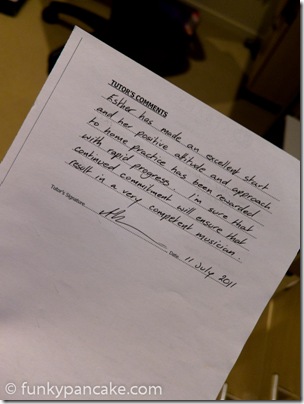 TUTOR'S COMMENTS
Esther has made an excellent start
and her positive attitude and approach
to home practice has been rewarded
with rapid progress. I'm sure that
continued commitment will ensure that
result in a very competent musician.
Tutor's Signature
Date: 11 July 2011
© funkypancake.com